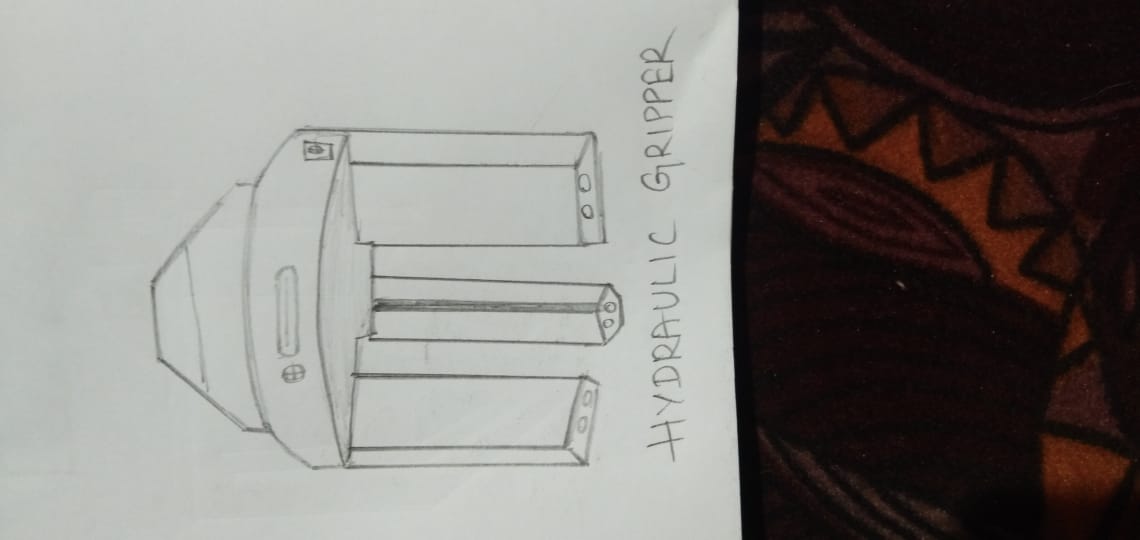 HYDRAULIC GRIPPER